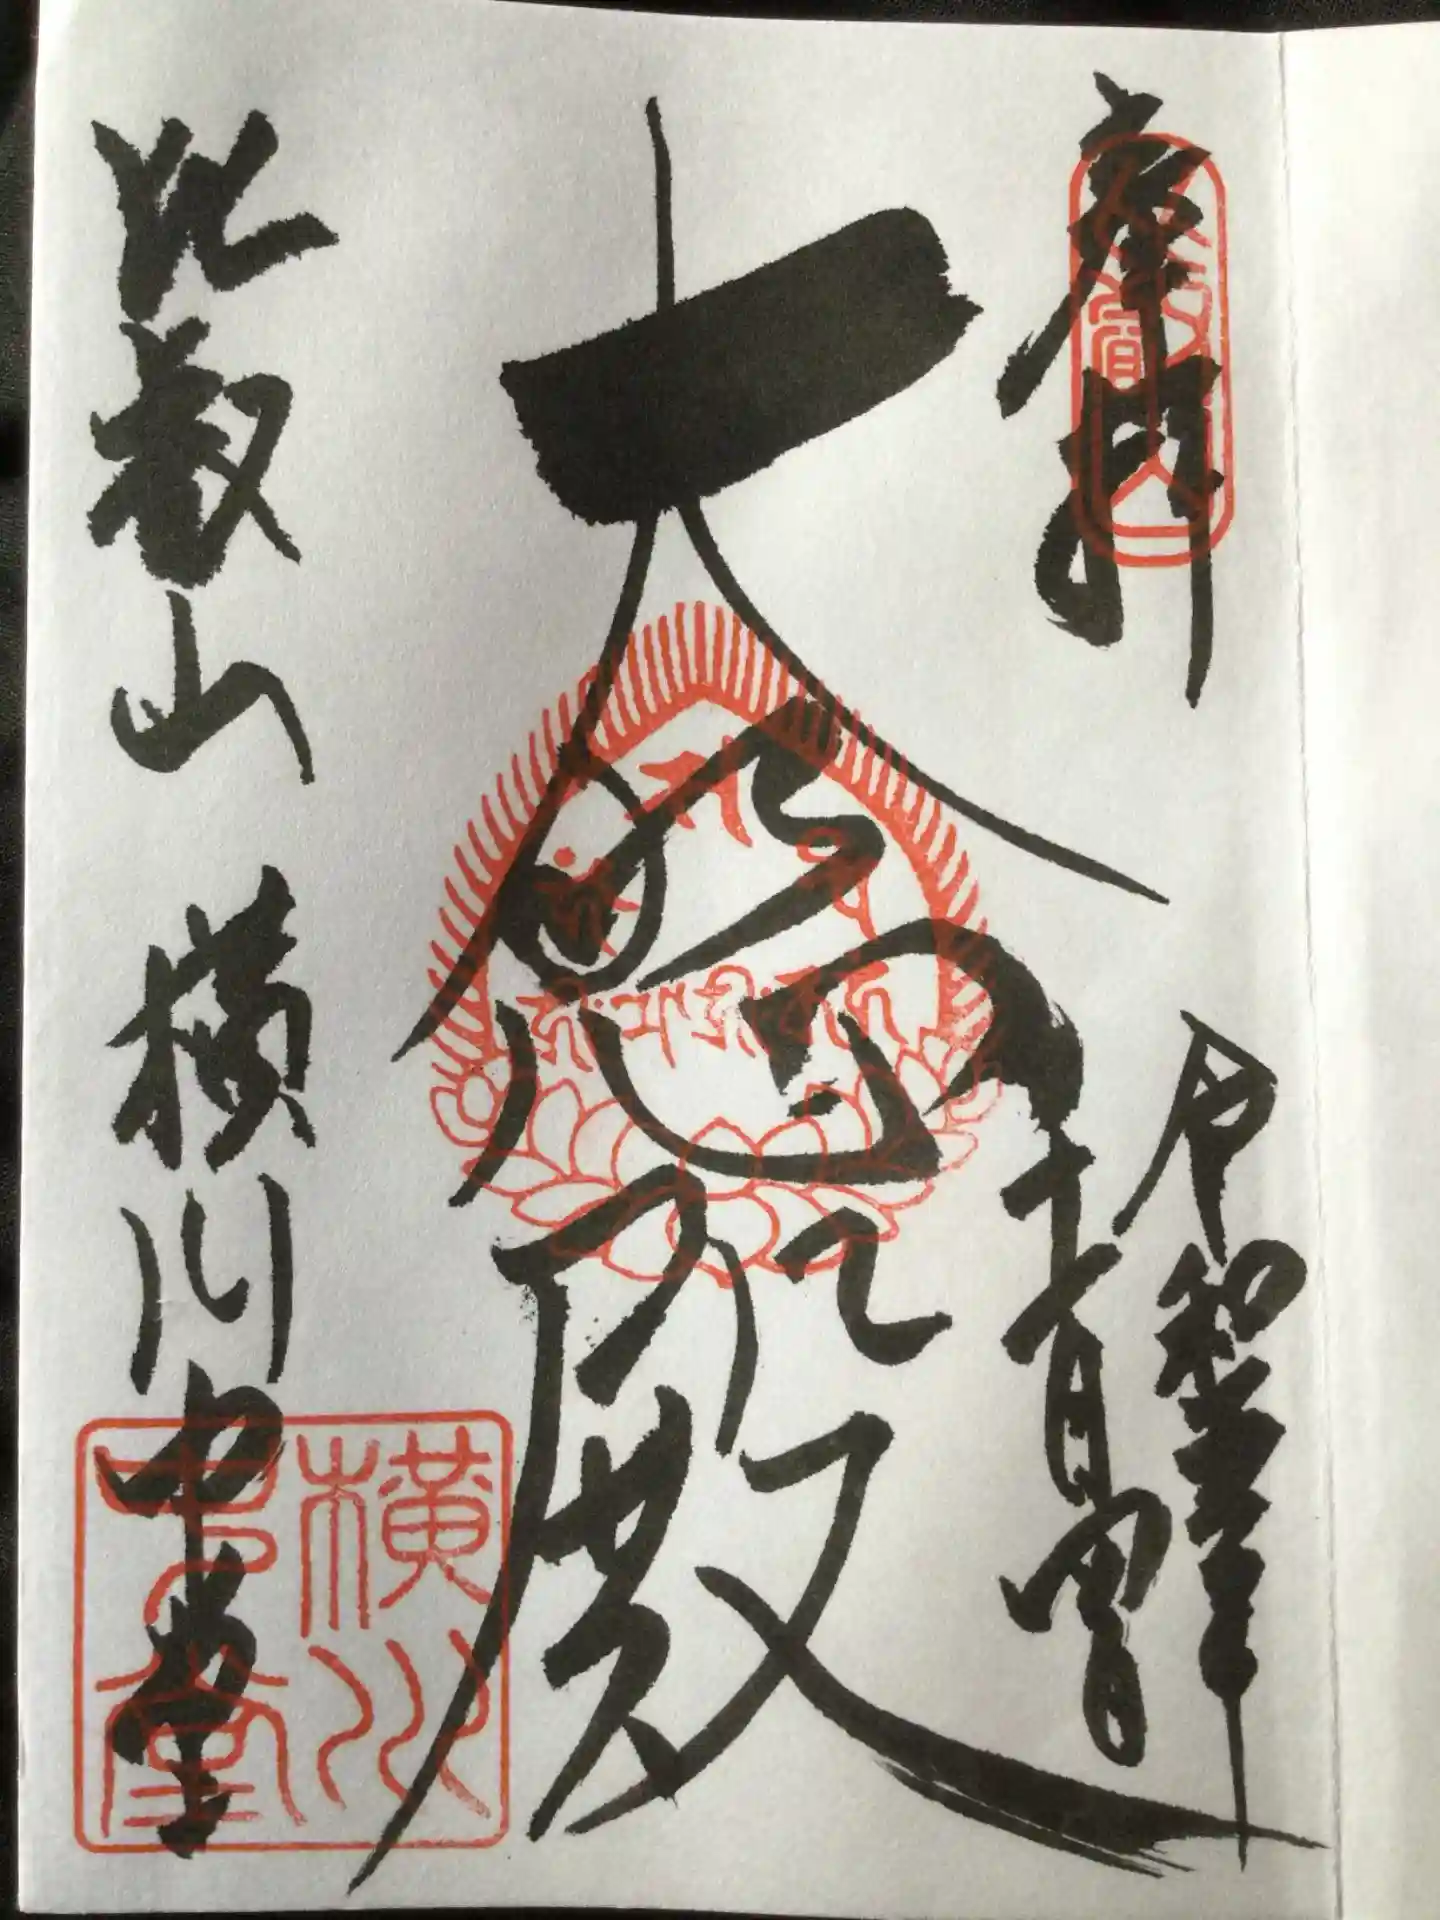 奉拝
令和
月
日
大悲殿
比叡山 横川中堂
横川
中堂